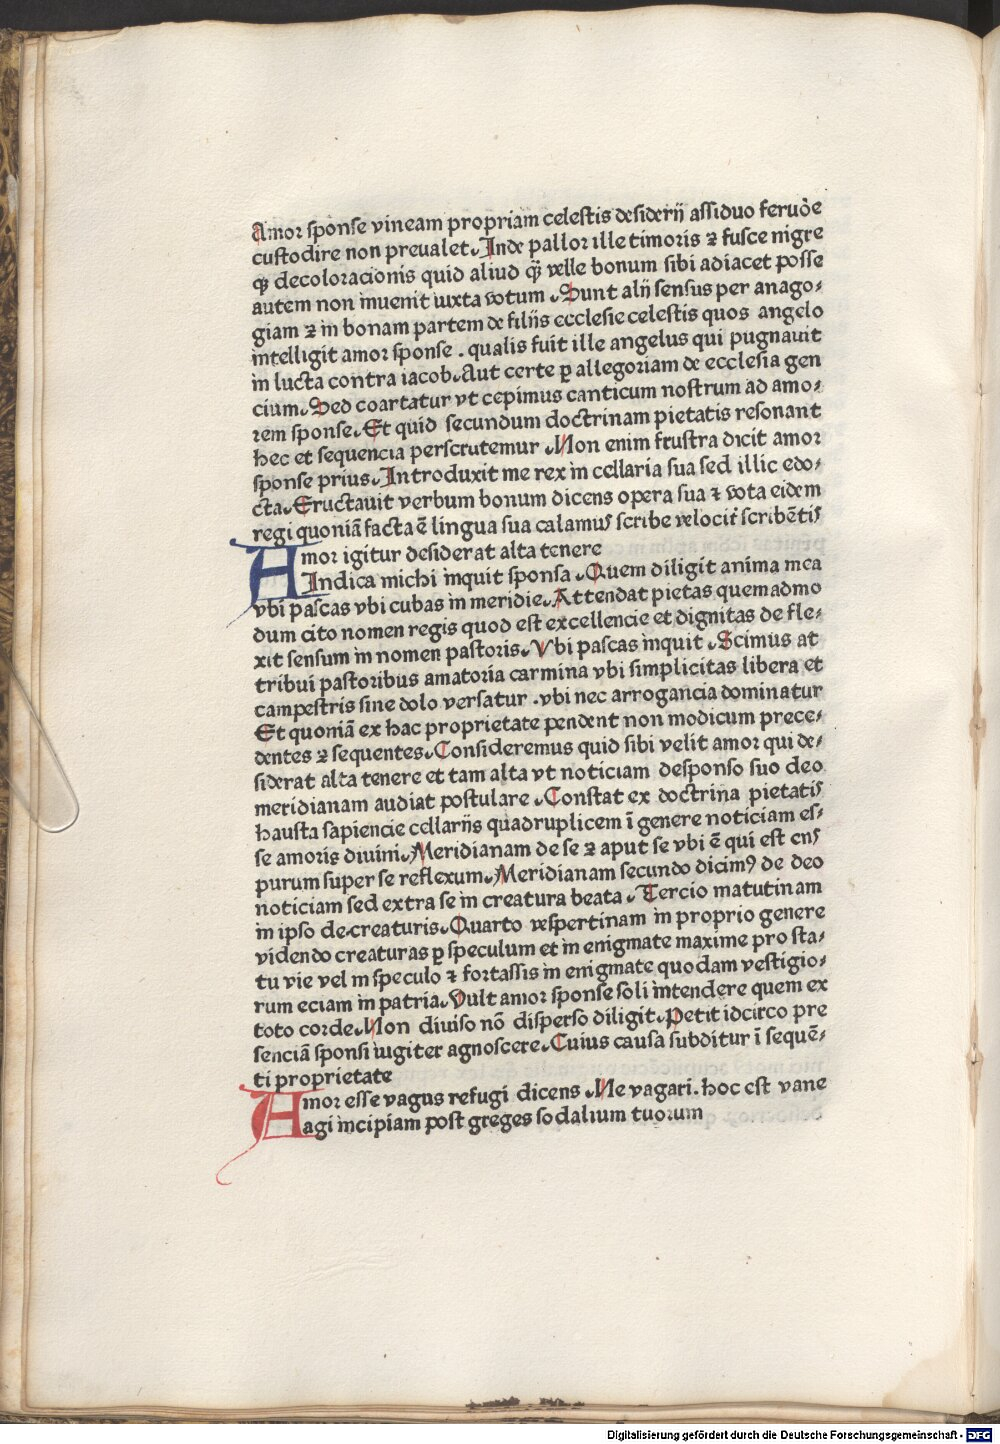 Amor sponse vineam propriam celestis desiderij assiduo feruōe
custodire non preualet. Inde pallor ille timoris ⁊ fusce nigre
qꝫ decoloracionis quid aliud qꝫ velle bonum sibi adiacet posse
autem non inuenit iuxta votum. Sunt alij sensus per anago-
giam ⁊ in bonam partem de filijs ecclesie celestis quos angelo
intelligit amor sponse. qualis fuit ille angelus qui pugnauit
in lucta contra iacob. Aut certe ꝑ allegoriam de ecclesia gen
cium. Sed coartatur vt cepimus canticum nostrum ad amo-
rem sponse. Et quid secundum doctrinam pietatis resonant
hec et sequencia perscrutemur. Non enim frustra dicit amor
sponse prius. Introduxit me rex in cellaria sua sed illic edo-
cta. Eructauit verbum bonum dicens opera sua ⁊ vota eidem
regi quoniā facta ē lingua sua calamus scribe velocit̄ scribētis
Amor igitur desiderat alta tenere
Indica michi inquit sponsa. Quem diligit anima mea
vbi pascas vbi cubas in meridie. Attendat pietas quemadmo
dum cito nomen regis quod est excellencie et dignitas de fle-
xit sensum in nomen pastoris. Vbi pascas inquit. Scimus at
tribui pastoribus amatoria carmina vbi simplicitas libera et
campestris sine dolo versatur. vbi nec arrogancia dominatur
Et quoniā ex hac proprietate pendent non modicum prece-
dentes ⁊ sequentes. Consideremus quid sibi velit amor qui de-
siderat alta tenere et tam alta vt noticiam desponso suo deo
meridianam audiat postulare. Constat ex doctrina pietatis
hausta sapiencie cellarijs quadruplicem ī genere noticiam es-
se amoris diuini. Meridianam de se ⁊ aput se vbi ē qui est ens
purum super se reflexum. Meridianam secundo dicimꝰ de deo
noticiam sed extra se in creatura beata. Tercio matutinam
in ipso de creaturis. Quarto vespertinam in proprio genere
videndo creaturas ꝑ speculum et in enigmate maxime pro sta-
tu vie vel in speculo ⁊ fortassis in enigmate quodam vestigio-
rum eciam in patria. Vult amor sponse soli intendere quem ex
toto corde. Non diuiso nō disperso diligit. Petit idcirco pre
senciā sponsi iugiter agnoscere. Cuius causa subditur ī sequē-
ti proprietate
Amor esse vagus refugi dicens. Ne vagari. hoc est vane
agi incipiam post greges sodalium tuorum
Digitalisierung gefördert durch die Deutsche Forschungsgemeinschaft - DFG